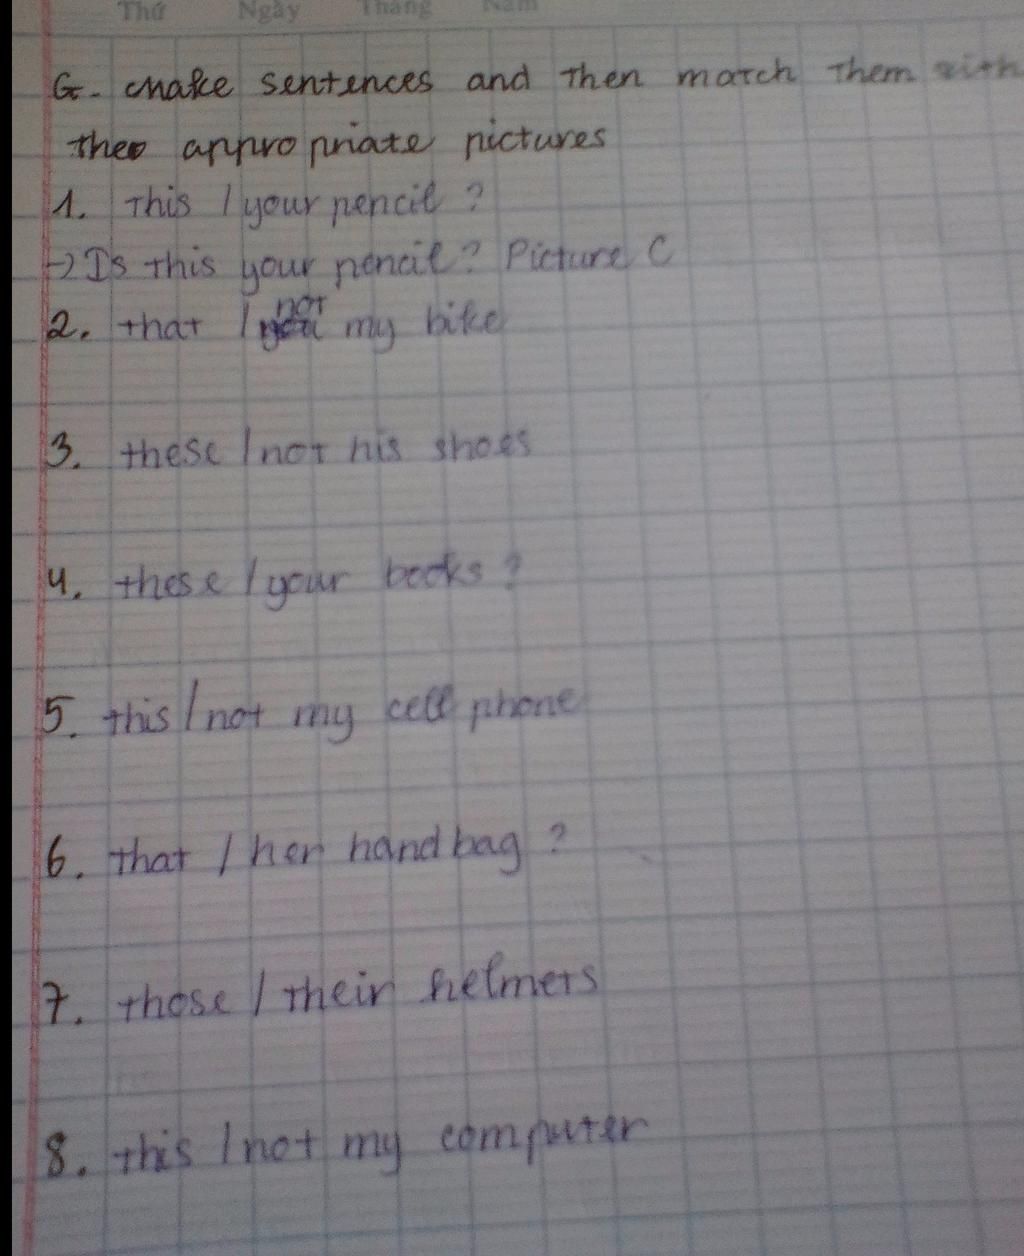 Thứ Ngày Tháng Năm
G. Make sentences and then match them with
the appropriate pictures
1. This / your pencil ?
→ Is this your pencil? Picture C
2. that / not my bike
3. these / not his shoes
4. these / your books ?
5. this / not my cell phone
6. that / her handbag ?
7. those / their helmets
8. this / not my computer